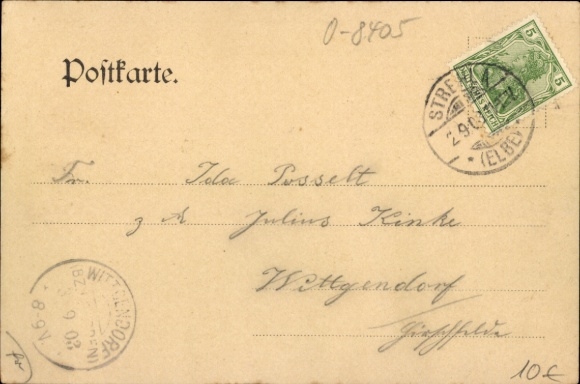 0-8405
Postkarte.
5 5
STRE
2.9.03
* (ELBE) *
Fr. Ida Posselt
z A Julius Kinke
Wittgendorf
Hirschfelde
WITTGENDORF
BZ.
9 03
* 8-9 V
10€